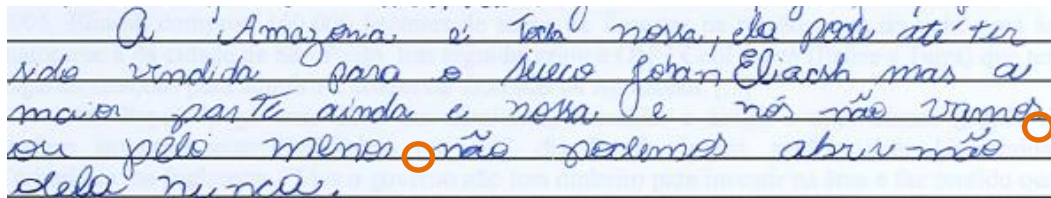 A Amazonia é toda nossa, ela pode até ter
sido vendida para o sueco Johan Eliacsh mas a
maior parte ainda e nossa e nós não vamos
ou pelo menos não podemos abrir mão
dela nunca.